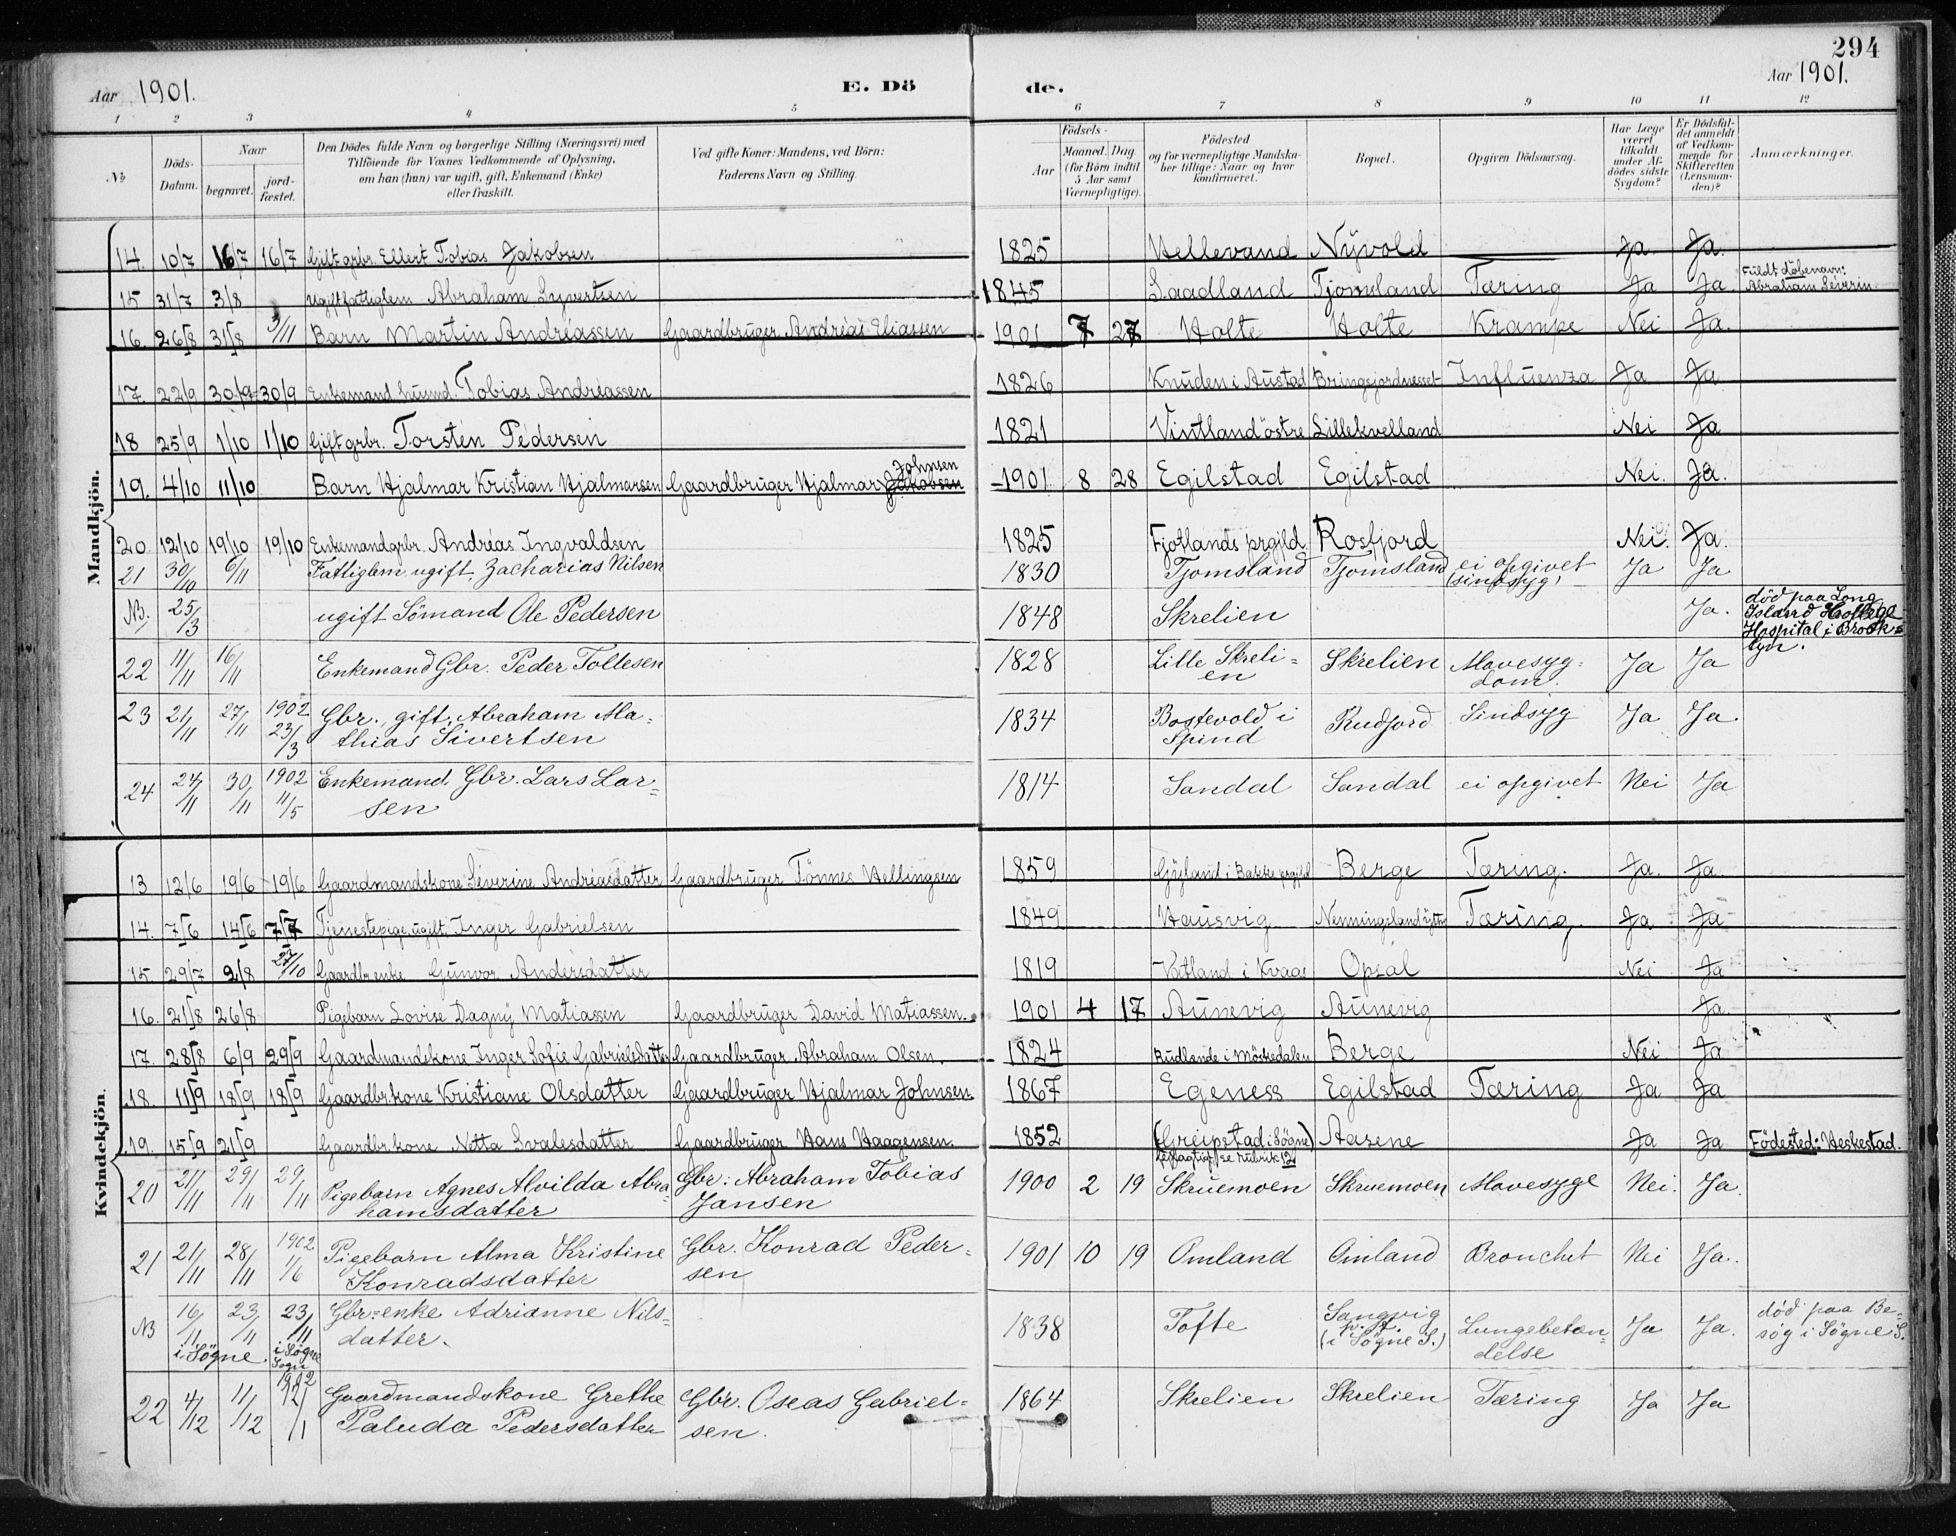 294
Aar 1901. E. Dö de. Aar 1901.
1 2 3 4 5 6 7 8 9 10 11 12
№ Döds-Datum. Naar begravet. jord-fæstet. Den Dödes fulde Navn og borgerlige Stilling (Næringsvei) med Tilföiende for Voxnes Vedkommende af Oplysning, om han (hun) var ugift, gift, Enkemand (Enke) eller fraskilt. Ved gifte Koner: Mandens, ved Börn: Faderens Navn og Stilling. Födsels- Aar Maaned. Dag (for Börn indtil 5 Aar samt Værnepligtige). Födested og for værnepligtige Mandskaber tillige: Naar og hvor konfirmeret. Bopæl. Opgiven Dödsaarsag. Har Læge været tilkaldt under Afdödes sidste Sygdom? Er Dödsfaldet anmeldt af Vedkommende for Skifteretten (Lensmanden)? Anmærkninger.
Mandkjön.
14. 10/7 16/7 16/7 Gift grbr. Ellert Tobias Jakobsen 1825 Hellevand Nyvold Ja. Ja.
15 31/7 3/8 Ugift fattiglem Abraham Syvertsen 1845 Laadland Tjomsland Tæring Ja Ja. Fuldt döbenavn: Abraham Séverin.
16. 26/8 31/8 3/11 Barn Martin Andréassen Gaardbruger Andréas Eliassen 1901 7 27 Holte Holte Krampe Nei Ja.
17. 22/9 30/9 30/9 Enkemand husmd. Tobias Andréassen 1826 Knuden i Austad Bringsjordnesset Influenza Ja Ja
18 25/9 1/10 1/10 Gift grbr. Torsten Pedersen 1821 Vintland östre Lillekvelland Nei Ja
19. 4/10 11/10 Barn Hjalmar Kristian Hjalmarsen Gaardbruger Hjalmar Jakobsen Johnsen 1901 8 28 Egilstad Egilstad Nei. Ja.
20. 12/10 19/10 19/10 Enkemand grbr. Andréas Ingvaldsen 1825 Fjotlands prgjld. Rosfjord Nei. Ja.
21 30/10 6/11 Fattiglem, ugift, Zacharias Nilsen 1830 Tjomsland Tjomsland ei opgivet (sindsyg) Ja Ja
NB. 25/3 ugift Sömand Ole Pedersen 1848 Skrelien Ja. död paa Long Island College Hospital i Brooklyn.
22 11/11 16/11 Enkemand Gbr. Peder Tollesen 1828 Lille Skreli=
en Skrelien Mavesyg=
dom. Ja Ja
23 21/11 27/11 1902 23/3 Gbr., gift, Abraham Ma=
thias Sivertsen 1834 Bostevold i
Spind Rudjord Sindsyg Ja Ja.
24 24/11 30/11 1902 11/5 Enkemand. Gbr. Lars Lar=
sen 1814 Sandal Sandal ei opgivet Nei Ja
Kvindekjön.
13 12/6 19/6 19/6 Gaardmandskone Séverine Andréasdatter Gaardbruger Tönnes Hellingsen 1859 Gjöjland i Bakke prgjld Berge Tæring. Ja. Ja.
14. 7/6 14/6 7/7 Tjenestepige, ugift, Inger Gabrielsen 1849 Hausvig Nenningsland ytre Tæring. Ja Ja
15. 29/7 2/8 27/10 Gaardbr. enke Gunvor Andersdatter 1819 Vatland i Kvaas Opsal Nei Ja
16. 21/8 26/8 Pigebarn Lovise Dagny Matiassen Gaardbruger David Matiassen. 1901 4 17 Aunevig Aunevig Ja
17. 28/8 6/9 29/9 Gaardmandskone Inger Sofie Gabrielsdatter Gaardbruger Abraham Olsen. 1824 Rudlande i Möskedalen Berge Nei. Ja
18. 11/9 18/9 18/9 Gaardbr. kone Kristiane Olsdatter Gaardbruger Hjalmar Johnsen. 1867 Egeness Egilstad Tæring Ja Ja
19. 15/9 21/9 Gaardbr. kone Netta Svalesdatter Gaardbruger Hans Haagensen. 1852 (Greipstad i Sögne) feilagtigt, se rubrik 12 Aasene Ja Ja Födested: Heskestad.
20 21/11 29/11 29/11 Pigebarn Agnes Alvilda Abra=
hamsdatter Gbr: Abraham Tobias
Jansen 1900 2 19 Skruemoen Skruemoen Mavesyge Nei. Ja.
21 21/11 28/11 1902 1/6 Pigebarn Alma Kristine
Konradsdatter Gbr. Konrad Peder=
sen 1901 10 19 Omland Omland Bronchet Nei Ja.
NB 16/11 i Sögne. 23/11 23/11 i Sögne Sogn Gbr=enke Adrianne Nils=
datter. 1838 Tofte Sangvig
p. t.
(i Sögne S.) Lungebetæn=
delse Ja Ja. död paa Be=
søg i Sögne S.
22 4/12 11/12 1902 12/1 Gaardmandskone Grethe
Paluda Pedersdatter Gbr. Oseas Gabriel=
sen. 1864 Skrelien Skrelien Tæring Ja Ja